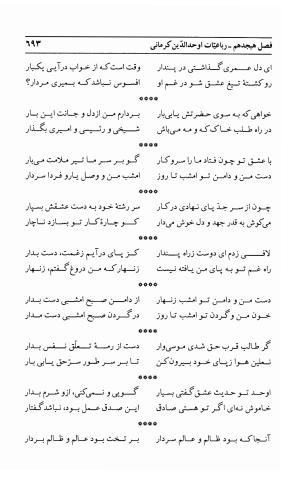 فصل هیجدهم ـ رباعیّات اوحدالدّین کرمانی / ۶۹۳
ای دل عمری گذاشتی در پندار وقت است که از خواب درآیی یکبار
رو کشتهٔ تیغ عشق شو در غم او افسوس نباشد که بمیری مردار؟
****
خواهی که به سوی حضرتش یابی بار بردارم من از دل و جانت این بار
در راه طلب خاک که و مه می‌باش شیخی و رئیسی و امیری بگذار
****
با عشق تو چون فتاد ما را سر و کار گو بر سر ما تیر ملامت می‌بار
دست من و دامن تو امشب تا روز امشب من و وصل یار و فردا سر دار
****
چون از سر جدّ پای نهادی در کار سر رشتهٔ خود به دست عشقش بسپار
می‌کوش به قدر جهد و دل خوش می‌دار کو چارهٔ کار تو بسازد ناچار
****
لافی زدم ای دوست ز راه پندار کز پای درآیم زغمت، دست بدار
راه غم تو به پای من یافته نیست زنهار که من دروغ گفتم، زنهار
****
دست من و دامن تو امشب زنهار از دامن صبح امشبی دست بدار
خون من و گردن تو امشب تا روز در گردن صبح امشبی دست مدار
****
گر طالب قرب حق شدی موسی‌وار دست از رسهٔ تعلّق نفس بدار
نعلین هوا ز پای خود بیرون کن تا بر سر طور سرّ حق یابی بار
****
اوحد تو حدیث عشق گفتی بسیار گویی و نمی‌کنی، ازو شرم بدار
خاموش نه‌ای اگر تو هستی صادق این صدق عمل بود، نباشد گفتار
****
آنجا که بود ظالم و عالم سردار بر تخت بود عالم و ظالم بر دار